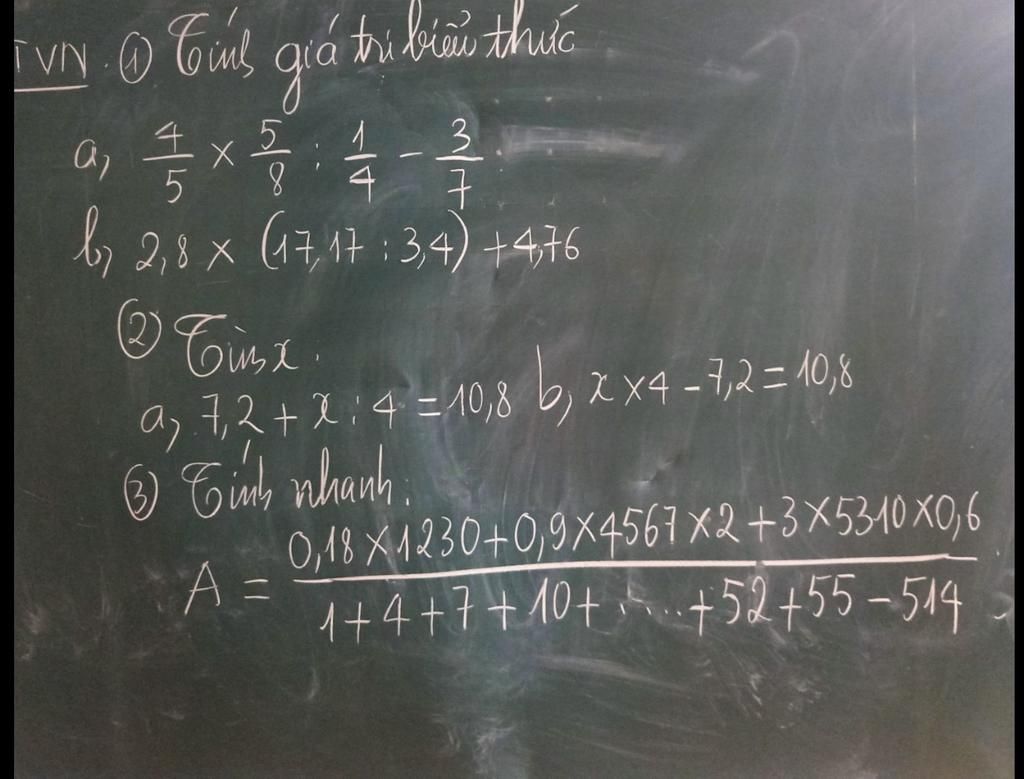 TVN. ① Tính giá trị biểu thức
a, 4/5 × 5/8 : 1/4 - 3/7
b, 2,8 × (17,17 : 3,4) + 4,76
② Tìm x.
a, 7,2 + x : 4 = 10,8 b, x × 4 - 7,2 = 10,8
③ Tính nhanh:
A = (0,18 × 1230 + 0,9 × 4567 × 2 + 3 × 5310 × 0,6) / (1 + 4 + 7 + 10 + ...... + 52 + 55 - 514)